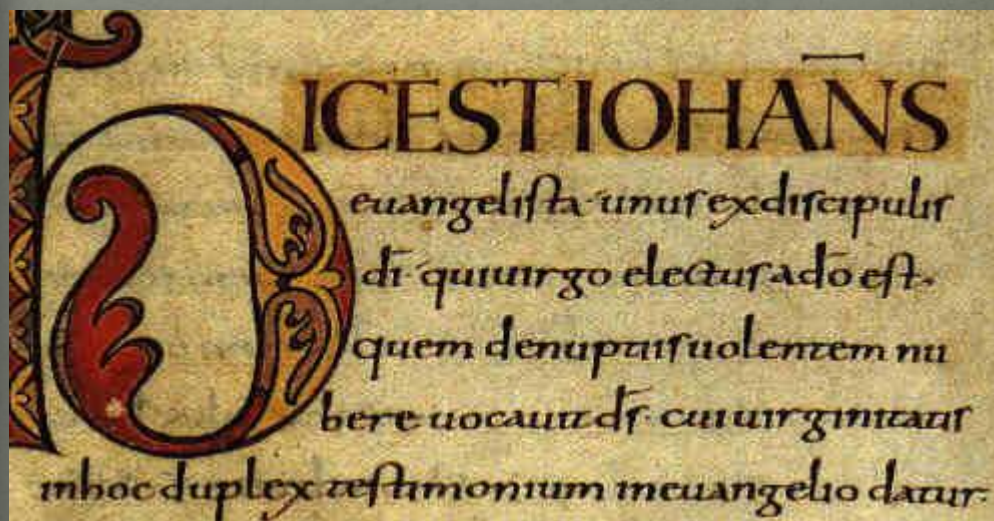 HICEST IOHAN̄S
euangelista · unus exdiscipulis
dī · quiuirgo electus adō est ·
quem denuptiis uolentem nu
bere uocauit ds̄ · cuiuirginitatis
inhoc duplex testimonium ineuangelio datur ·